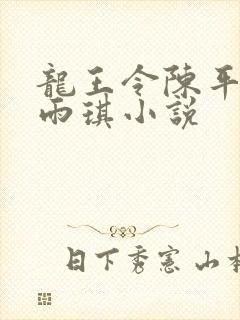 龍王令陳平
雨琪小説
日下秀憲 山本